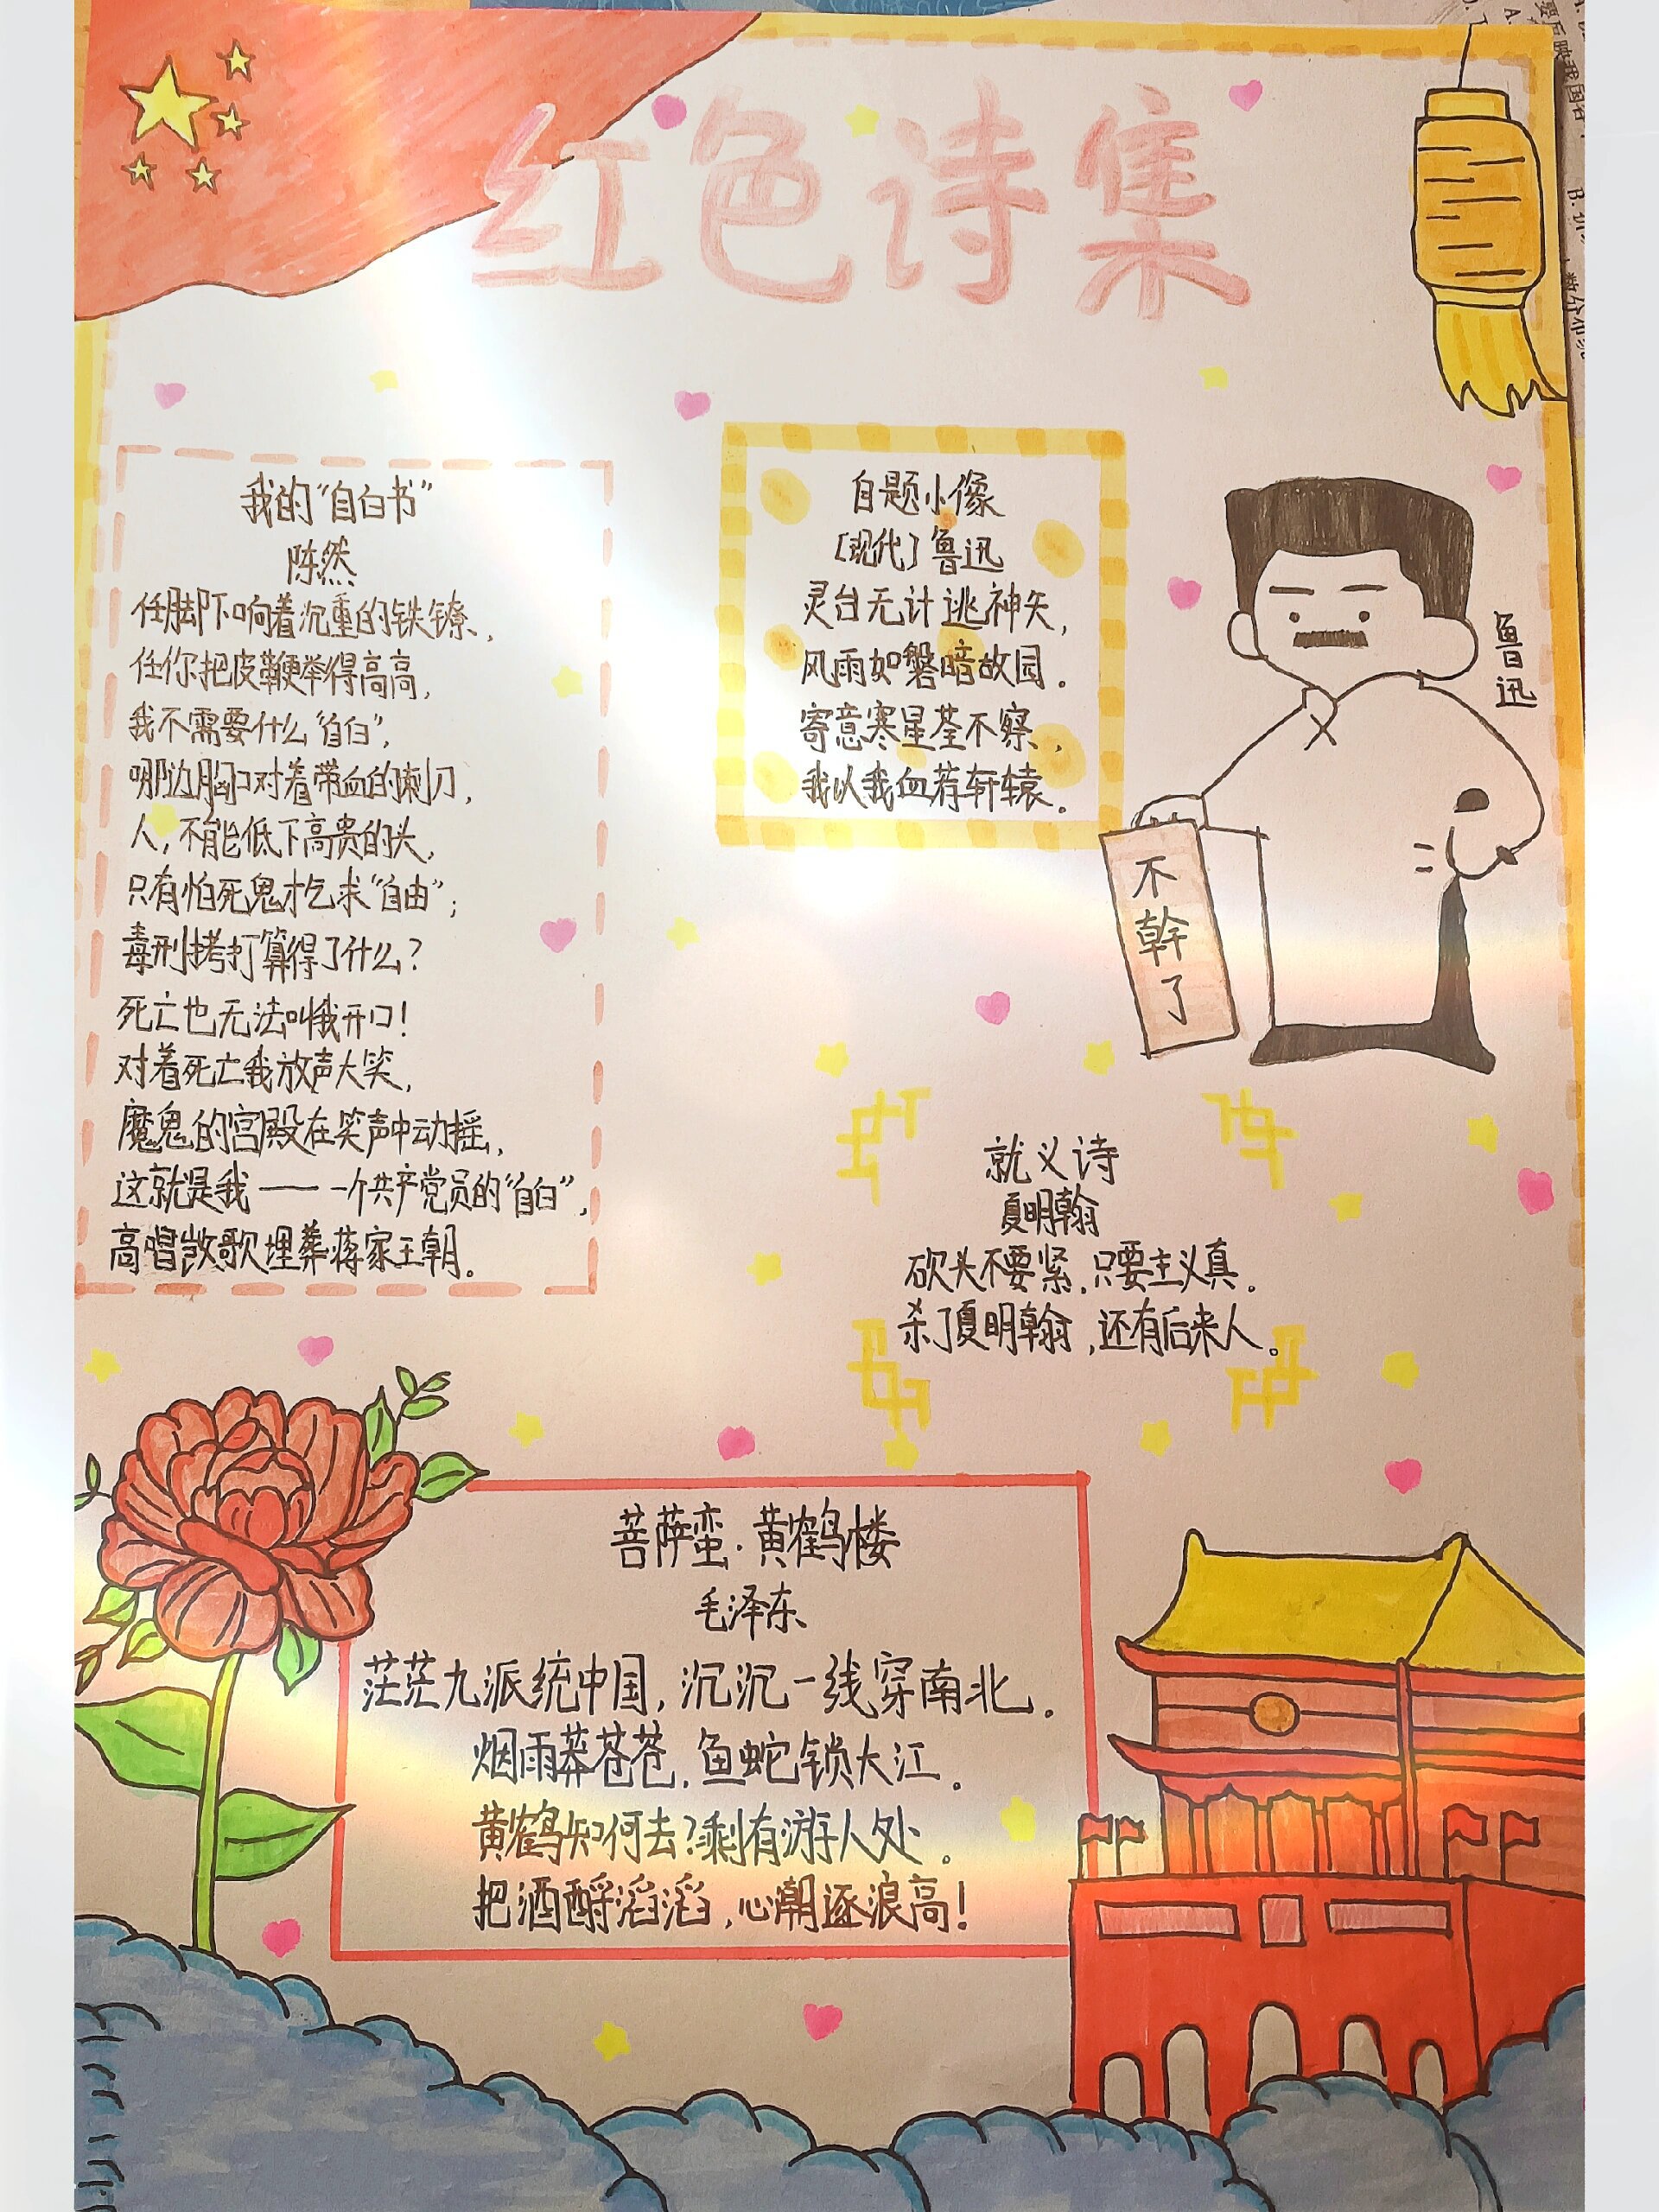 红色诗集
我的“自白书”
陈然
任脚下响着沉重的铁镣，
任你把皮鞭举得高高，
我不需要什么“自白”，
哪边胸口对着带血的刺刀，
人，不能低下高贵的头，
只有怕死鬼才乞求“自由”；
毒刑拷打算得了什么？
死亡也无法叫我开口！
对着死亡我放声大笑，
魔鬼的宫殿在笑声中动摇，
这就是我——一个共产党员的“自白”，
高唱凯歌埋葬蒋家王朝。
自题小像
[现代]鲁迅
灵台无计逃神矢，
风雨如磐暗故园。
寄意寒星荃不察，
我以我血荐轩辕。
鲁迅
不
幹
了
就义诗
夏明翰
砍头不要紧，只要主义真。
杀了夏明翰，还有后来人。
菩萨蛮·黄鹤楼
毛泽东
茫茫九派统中国，沉沉一线穿南北。
烟雨莽苍苍，鱼蛇锁大江。
黄鹤知何去？剩有游人处。
把酒酹滔滔，心潮逐浪高！